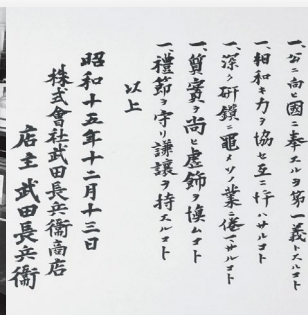 一、公ニ向ヒ國ニ奉スルヲ第一義トスルコト
一、相和キ力ヲ協セ互ニ忤ハサルコト
一、深ク研鑽ニ黽メソノ業ニ倦マサルコト
一、質實ヲ尚ヒ虚飾ヲ愼ムコト
一、禮節ヲ守リ謙讓ヲ持スルコト
以上
昭和十五年十二月十三日
株式會社武田長兵衞商店
店主 武田長兵衞